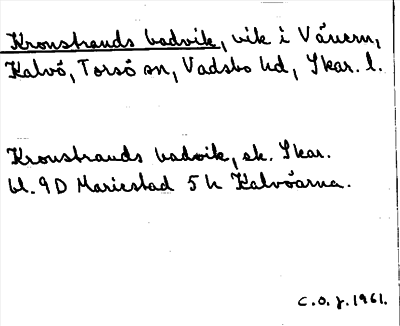 Kronstrands badvik, vik i Vänern,
Kalvö, Torsö sn, Vadsbo hd, Skar. l.
Kronstrands badvik, ek. Skar.
bl. 9D Mariestad 5 h Kalvöarna.
C.O.J. 1961.